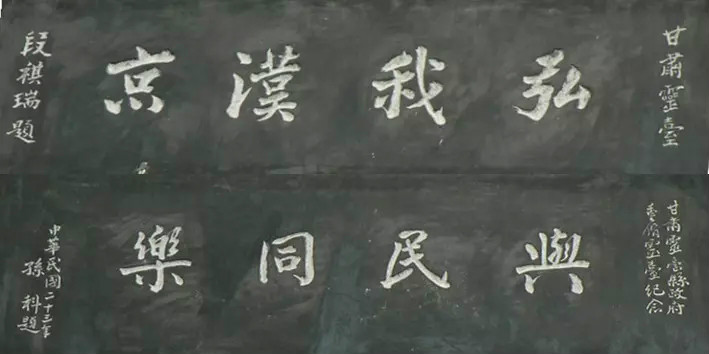 甘肅靈臺
弘我漢京
段祺瑞題
甘肅靈臺縣政府
重修靈臺紀念
與民同樂
中華民國二十三年
孫科題